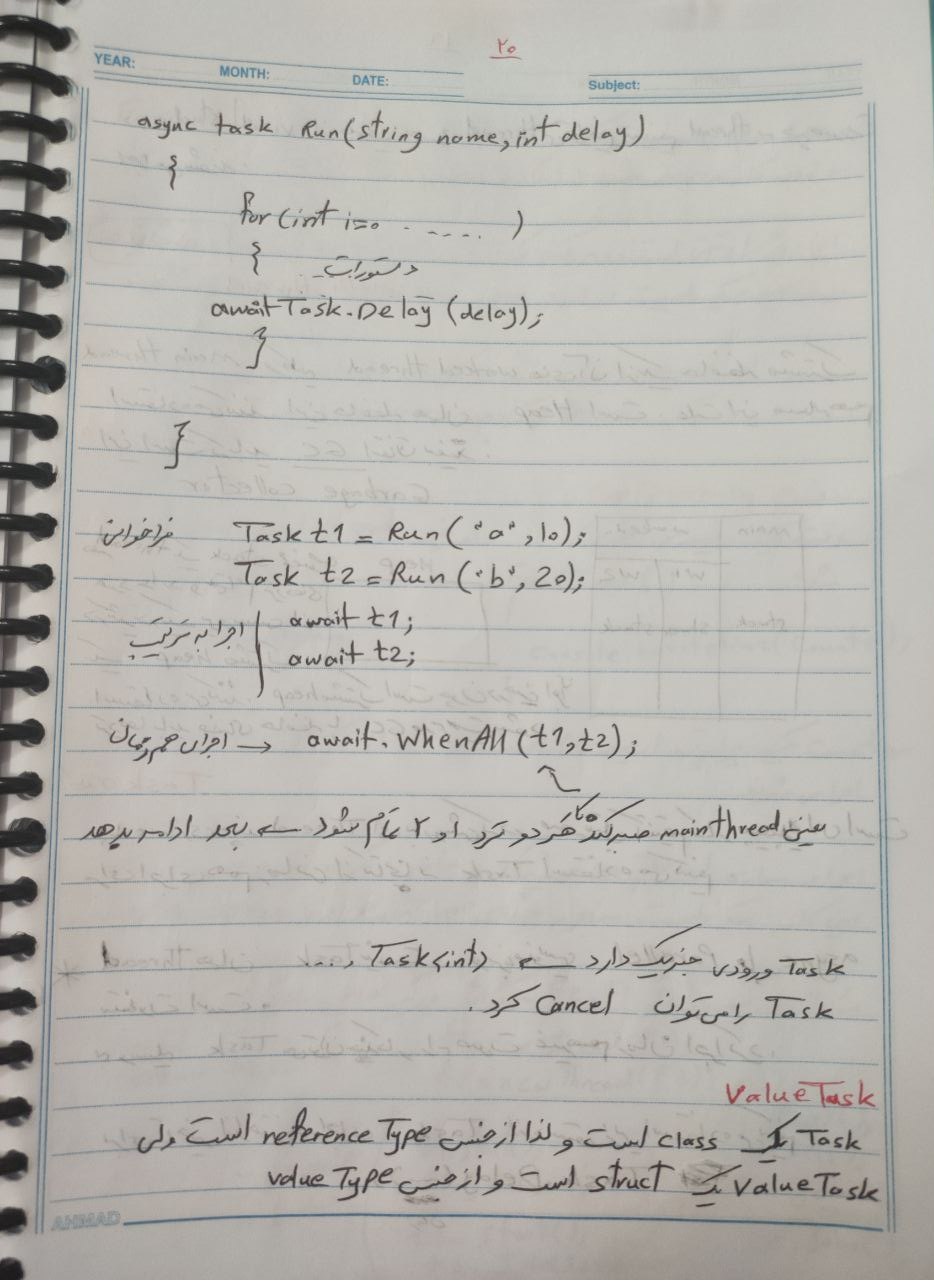 ۲۰
YEAR: MONTH: DATE: Subject:
async task Run(string name, int delay)
{
for (int i=0 . ..... )
{ دستورات
await Task.Delay (delay);
}
}
فراخوانی Task t1 = Run("a", 10);
Task t2 = Run("b", 20);
اجرا به ترتیب await t1;
await t2;
اجرای همزمان → await.WhenAll (t1,t2);
یعنی main thread صبر کند تا هر دو ترد ۱ و ۲ تمام شود ← بعد ادامه بدهد
Task ورودی جنریک دارد ← Task<int> , ...
Task را می‌توان Cancel کرد.
ValueTask
Task یک class است و لذا از جنس reference Type است ولی
ValueTask یک struct است و از جنس value Type
AHMAD